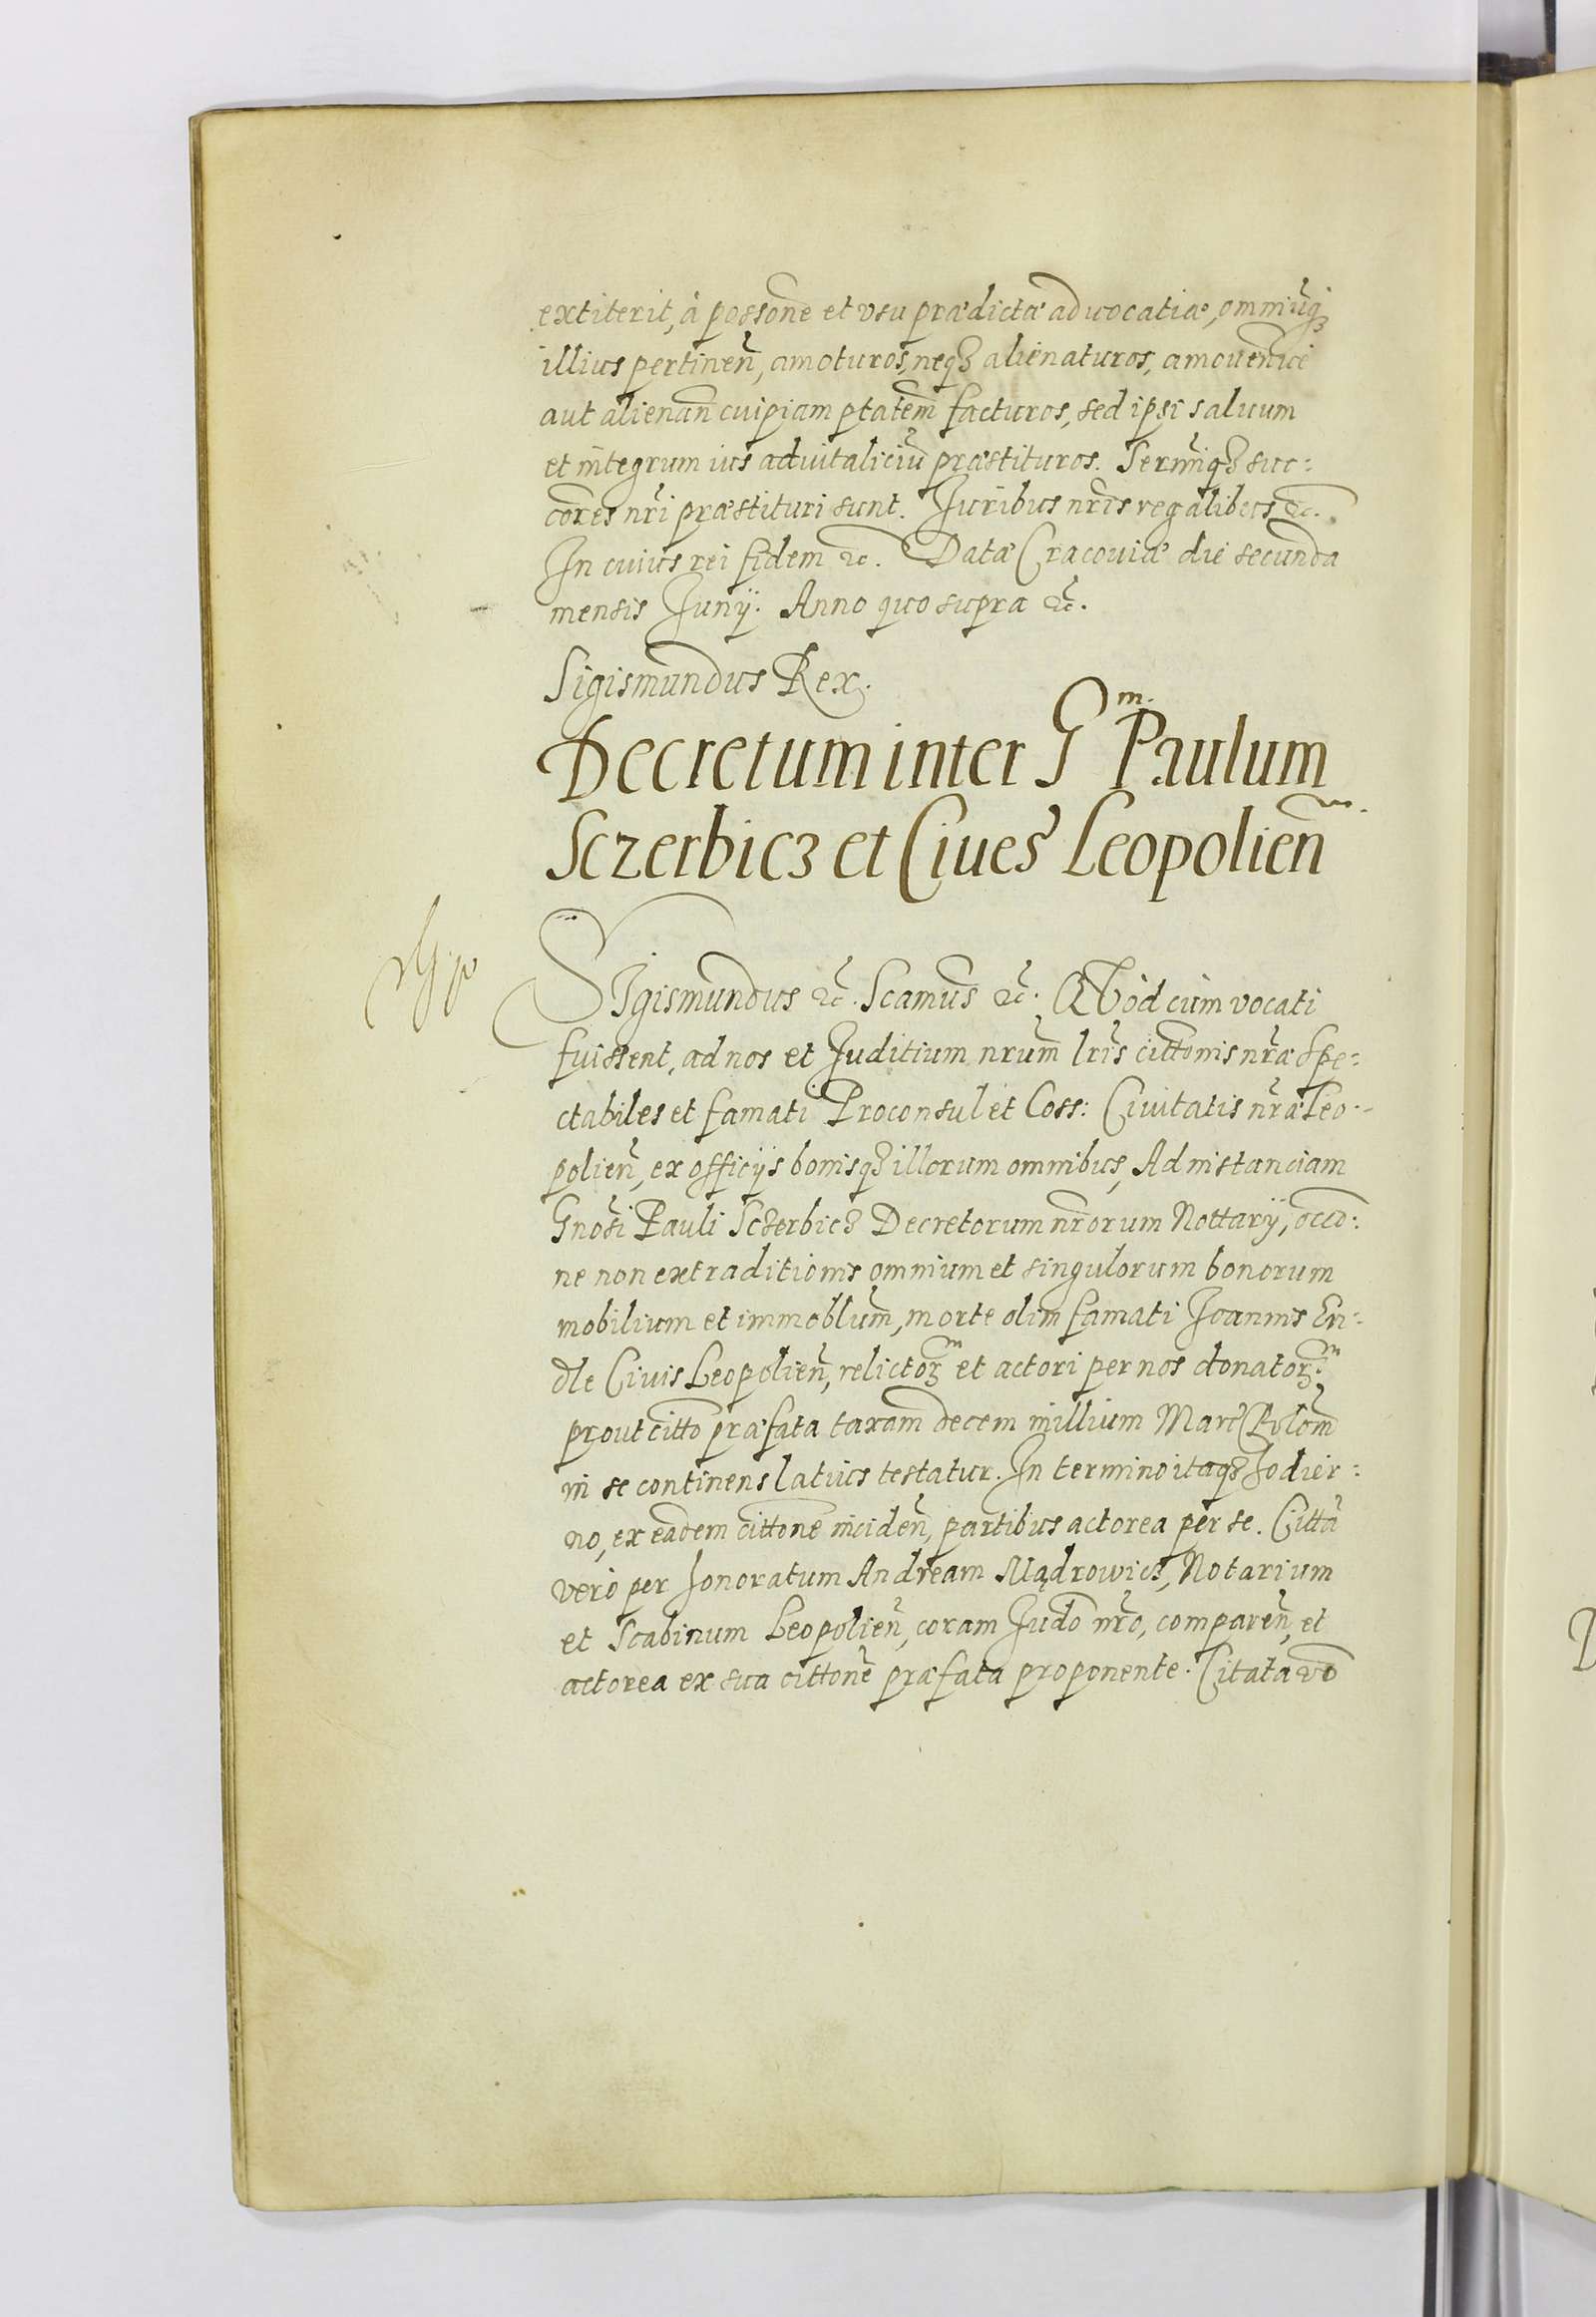 extiterit, à possone et vsu prædictæ aduocatiæ, omniuq3
illius pertinen, amoturos, neq3 alienaturos, amouendiue
aut alienan cuipiam ptatem facturos, sed ipsi saluum
et integrum ius aduitaliciu præstituros. Sermiq3 suc:
cores nri præstituri sunt. Juribus nris regalibus &c.
In cuius rei fidem &c. Datæ Cracouiæ die secunda
mensis Junij. Anno quo supra &c.
Sigismundus Rex.
Decretum inter G^m. Paulum
Sczerbicz et Ciues Leopolien
SIgismundus &c. Scamus &c. QVòd cùm vocati
fuissent, ad nos et Juditium nrum lris cittonis nræ Spe:
ctabiles et famati Proconsul et Coss: Ciuitatis nræ Leo:
polien, ex officijs bonisq3 illorum omnibus, Ad instanciam
Gnosi Pauli Sczerbicz Decretorum nrorum Nottarij, occo:
ne non extraditionis omnium et singulorum bonorum
mobilium et immoblum, morte olim famati Joannis En:
dle Ciuis Leopolien, relictor et actori per nos donator:
prout citto præfata taxam decem millium Marc Polom
in se continens latius testatur. In termino itaq3 hodier:
no, ex eadem cittone inciden, partibus actorea per se. Citta
verò per honoratum Andream Mądrowicz, Notarium
et Scabinum Leopolien, coram Judo nro, comparen, et
actorea ex sua cittone præfata proponente. Citata vo